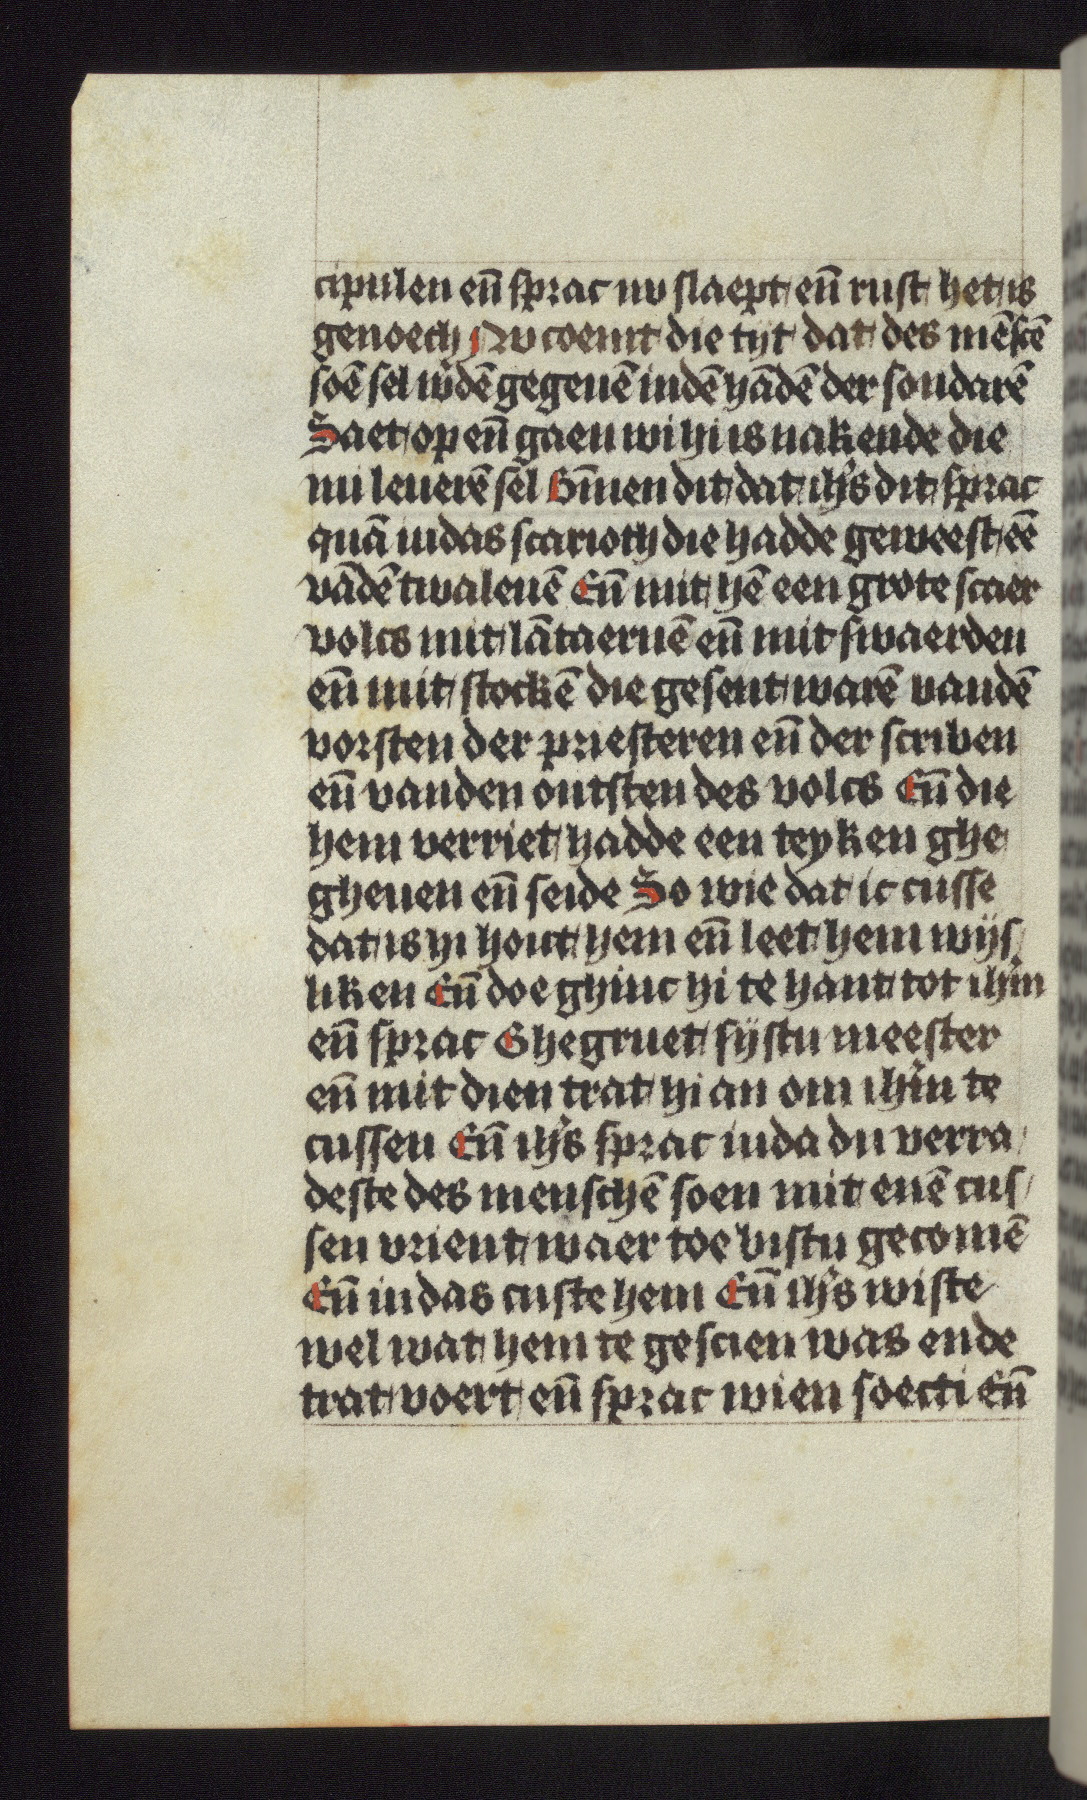 cipulen en̄ sprac nv slaept en̄ rust het is
genoech Nv coemt die tyt dat des mēscē
soē sel w̕dē gegeuē indē hādē der sondarē
Staet op en̄ gaen wi hi is nakende die
mi leuerē sel Bīnen dit dat ihs̄ dit sprac
quā iudas scarioth die hadde geweest eē
vādē twaleuē En̄ mit hē een grote scaer
volcs mit lātaernē en̄ mit swaerden
en̄ mit stockē die gesent warē vandē
vorsten der priesteren en̄ der scriben
en̄ vanden outsten des volcs En̄ die
hem verriet hadde een teyken ghe
gheuen en̄ seide So wie dat ic cusse
dat is hi hout hem en̄ leet hem wijs/
liken En̄ doe ghinc hi te hant tot ihm̄
en̄ sprac Ghegruet sijstu meester
en̄ mit dien trat hi an om ihm̄ te
cussen En̄ ihs̄ sprac iuda du verra/
deste des menschē soen mit enē cus/
sen vrient waer toe bistu gecomē
En̄ iudas custe hem En̄ ihs̄ wiste
wel wat hem te gescien was ende
trat voert en̄ sprac wien soecti En̄